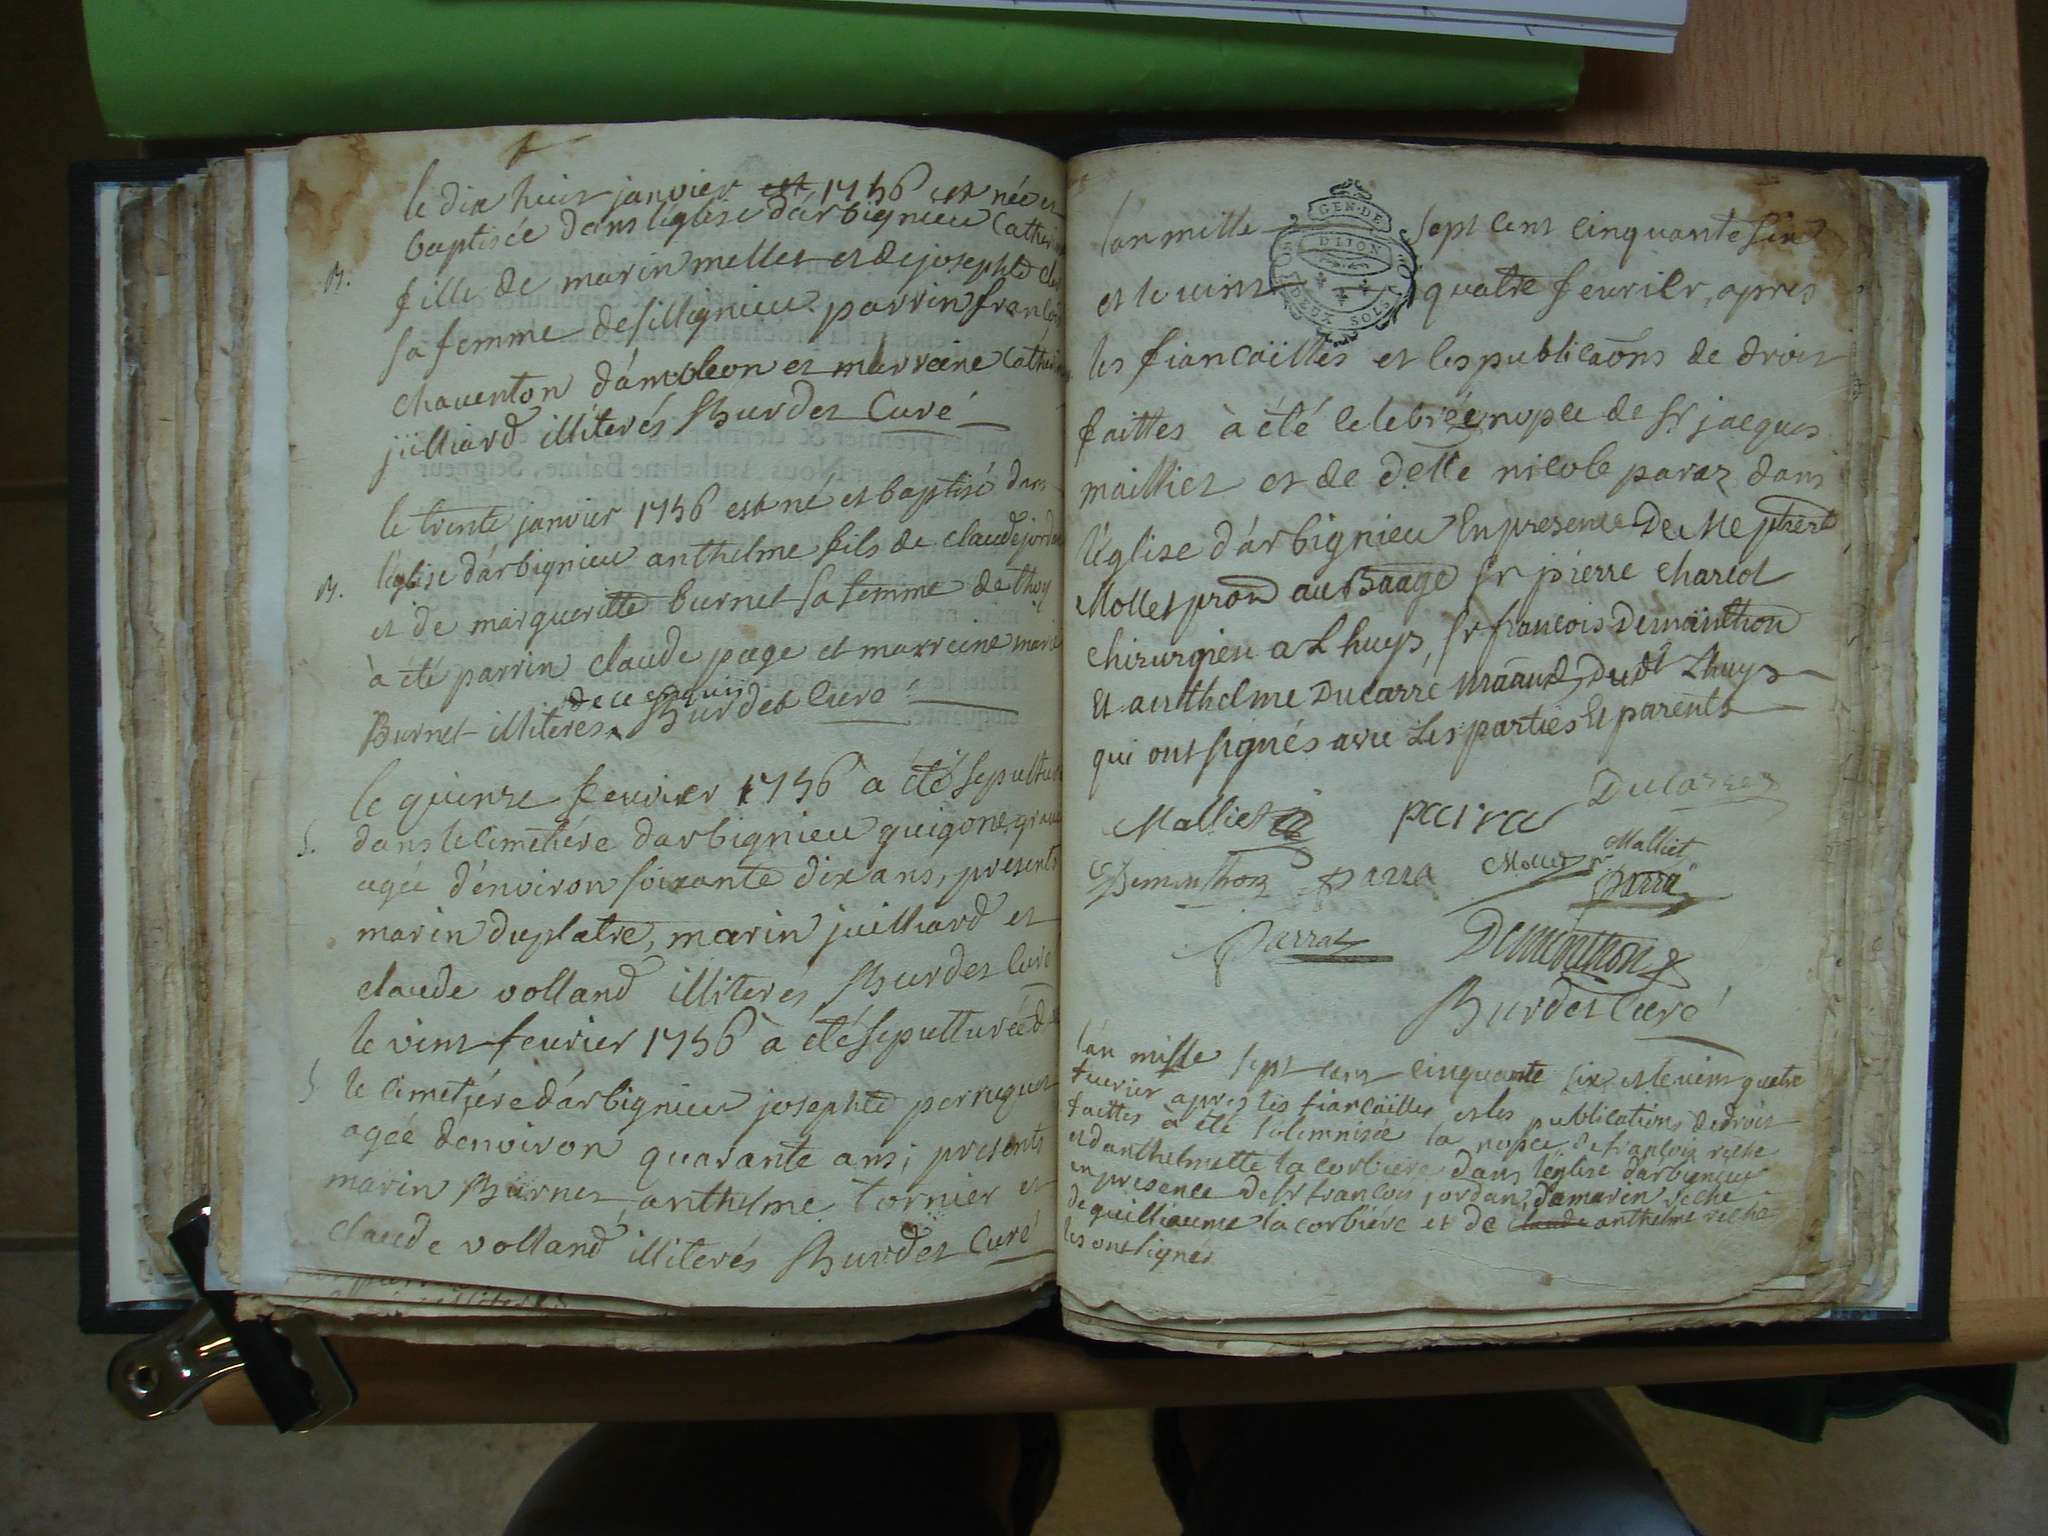 le dix huit janvier est 1756 est née et
baptisée dans l'église d'arbignieu
B.
fille de marin mellet et de josephte
sa femme de sillignieu parrin
chaventon d'amoleon et marreine
juilliard illiterés Burdet Curé
le trente janvier 1756 est né et baptisé dans
B.
l'église d'arbignieu anthelme fils de claude
et de margueritte burnet sa femme de thoy
à été parrin claude page et marreine
de ce enquis
Burnet illiteres Burdet Curé
le quinze fevrier 1756 a été
S.
dans le cimetiére d'arbignieu guigone
agée d'environ soixante dix ans, presents
marin duplatre, marin juilliard et
claude volland illiterés Burdet Curé
le vint fevrier 1756 à été sepulturée
S.
le cimetiére d'arbignieu josephte perruquet
agée d'environ quarante ans, presents
marin Burnet, anthelme tornier et
claude volland illiterés Burdet Curé
l'an mille sept cent cinquante six
GEN. DE
DIJON
DEUX SOLS
et le vint quatre fevrier, apres
les fiancailles et les publicaons de droit
faittes à été celebrée nopce de sr jacques
mailliet et de delle nicole paraz dans
l'église d'arbignieu En presence De Me
Mollet sr pierre Charcot
chirurgien a Lhuys, sr francois Deminthon
Et anthelme Ducarré, Dudt Lhuys
qui ont signés avec Les parties Et parents
Malliet parra Ducarre
Deminthon parra Mollet Malliet
parra
Parraz Deminthon
Burdet Curé
l'an mille sept cent cinquante six et le vint quatre
fevrier apres les fiancailles et les publications de droit
faittes à été solemnisée la nopce de francois reche
et d'anthelmette la corbiere dans l'église d'arbignieu
en presence de sr francois jordan, d'amaren reche
de guilliaume la corbiére et de claude anthelme reche
les ont signés